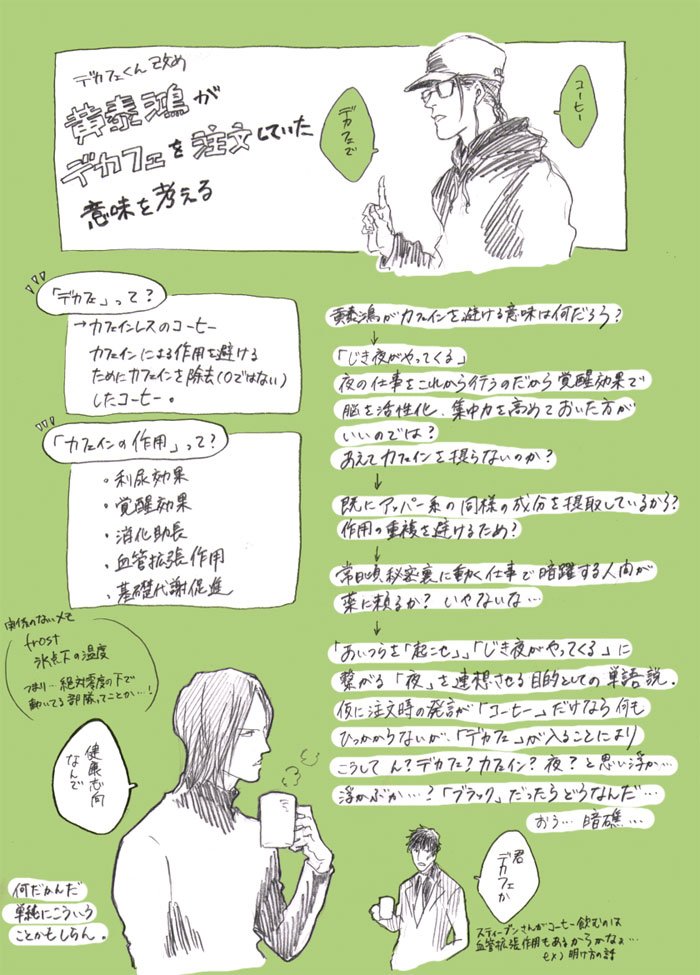 デカフェくん改め
黄泰鴻が
デカフェを注文していた
意味を考える
コーヒー
デカフェで
「デカフェ」って？
→カフェインレスのコーヒー
カフェインによる作用を避ける
ためにカフェインを除去(0ではない)
したコーヒー。
「カフェインの作用」って？
・利尿効果
・覚醒効果
・消化助長
・血管拡張作用
・基礎代謝促進
黄泰鴻がカフェインを避ける意味は何だろう？
↓
「じき夜がやってくる」
夜の仕事をこれから行うのだから覚醒効果で
脳を活性化、集中力を高めておいた方が
いいのでは？
あえてカフェインを摂らないのか？
↓
既にアッパー系の同様の成分を摂取しているから？
作用の重複を避けるため？
↓
常日頃秘密裏に動く仕事で暗躍する人間が
薬に頼るか？いやないな…
↓
「あいつらを「起こせ」」「じき夜がやってくる」に
繋がる「夜」を連想させる目的としての単語説.
仮に注文時の発言が「コーヒー」だけなら何も
ひっかからないが、「デカフェ」が入ることにより
こうして ん？デカフェ？カフェイン？夜？と思い浮か…
浮かぶか…？「ブラック」だったらどうなんだ…
おう… 暗礁…
関係のないメモ
frost
氷点下の温度
つまり…絶対零度の下で
動いてる部隊ってことか…！
健康志向
なんで
何だかんだ
単純にこういう
ことかもしらん。
君
デカフェか
スティーブンさんがコーヒー飲むのは
血管拡張作用もあるからかなぁ…
ex) 明け方の話